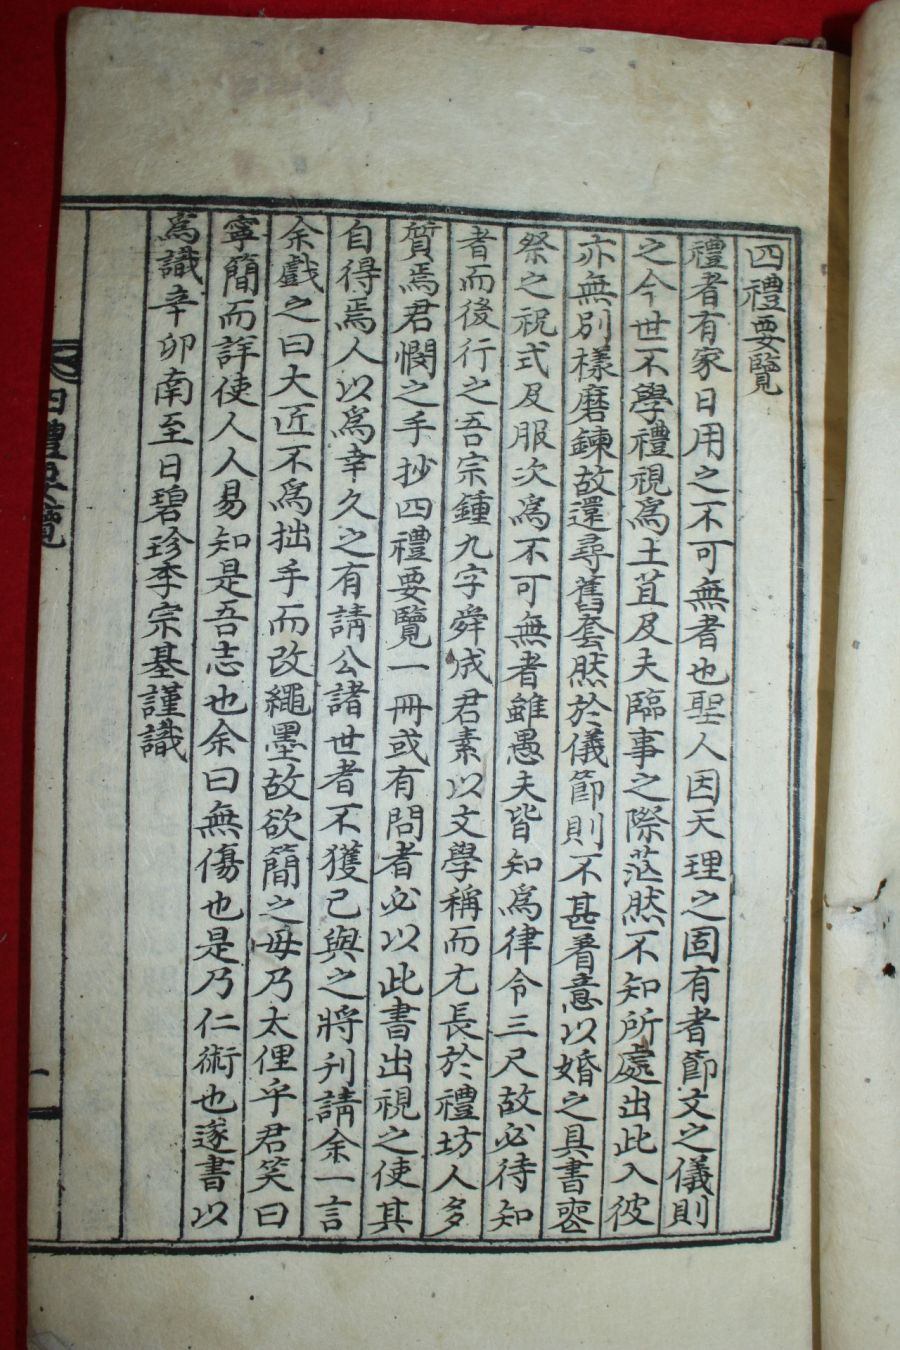 四禮要覽
禮者有家日用之不可無者也聖人因天理之固有者節文之儀則
之今世不學禮視爲土苴及夫臨事之際茫然不知所處出此入彼
亦無別樣磨鍊故還尋舊套然於儀節則不甚着意以婚之具書喪
祭之祝式及服次爲不可無者雖愚夫皆知爲律令三尺故必待知
者而後行之吾宗鍾九字舜成君素以文學稱而尤長於禮坊人多
質焉君憫之手抄四禮要覽一冊或有問者必以此書出視之使其
自得焉人以爲幸久之有請公諸世者不獲已與之將刋請余一言
余戱之曰大匠不爲拙手而改繩墨故欲簡之毋乃太俚乎君笑曰
寧簡而詳使人人易知是吾志也余曰無傷也是乃仁術也遂書以
爲識辛卯南至日碧珍李宗基謹識
四禮要覽
一